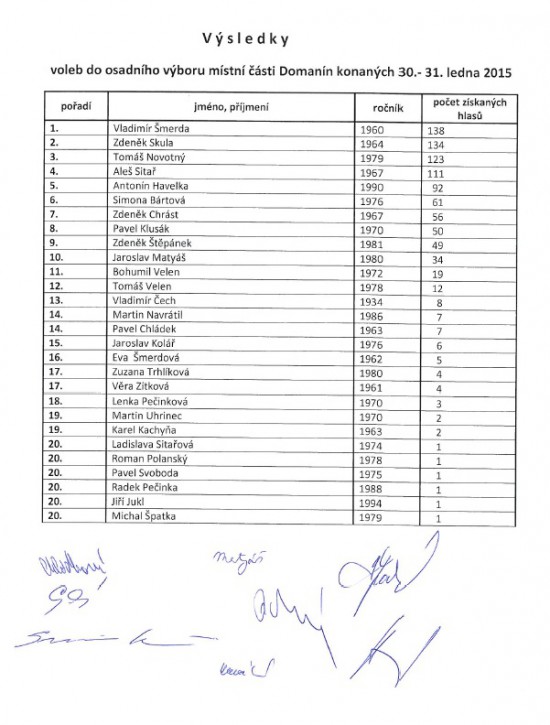 Výsledky
voleb do osadního výboru místní části Domanín konaných 30.- 31. ledna 2015
pořadí jméno, příjmení ročník počet získaných hlasů
1. Vladimír Šmerda 1960 138
2. Zdeněk Skula 1964 134
3. Tomáš Novotný 1979 123
4. Aleš Sitař 1967 111
5. Antonín Havelka 1990 92
6. Simona Bártová 1976 61
7. Zdeněk Chrást 1967 56
8. Pavel Klusák 1970 50
9. Zdeněk Štěpánek 1981 49
10. Jaroslav Matyáš 1980 34
11. Bohumil Velen 1972 19
12. Tomáš Velen 1978 12
13. Vladimír Čech 1934 8
14. Martin Navrátil 1986 7
14. Pavel Chládek 1963 7
15. Jaroslav Kolář 1976 6
16. Eva Šmerdová 1962 5
17. Zuzana Trhlíková 1980 4
17. Věra Zitková 1961 4
18. Lenka Pečinková 1970 3
19. Martin Uhrinec 1970 2
19. Karel Kachyňa 1963 2
20. Ladislava Sitařová 1974 1
20. Roman Polanský 1978 1
20. Pavel Svoboda 1975 1
20. Radek Pečinka 1988 1
20. Jiří Jukl 1994 1
20. Michal Špatka 1979 1
Matyáš